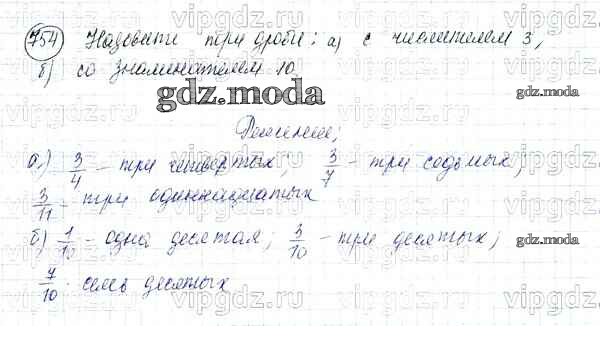 754 Назовите три дроби: а) с числителем 3,
б) со знаменателем 10.
gdz.moda
Решение;
а) 3/4 - три четвертых; 3/7 - три седьмых;
3/11 - три одиннадцатых
б) 1/10 - одна десятая; 3/10 - три десятых;
7/10 - семь десятых
vipgdz.ru
gdz.moda